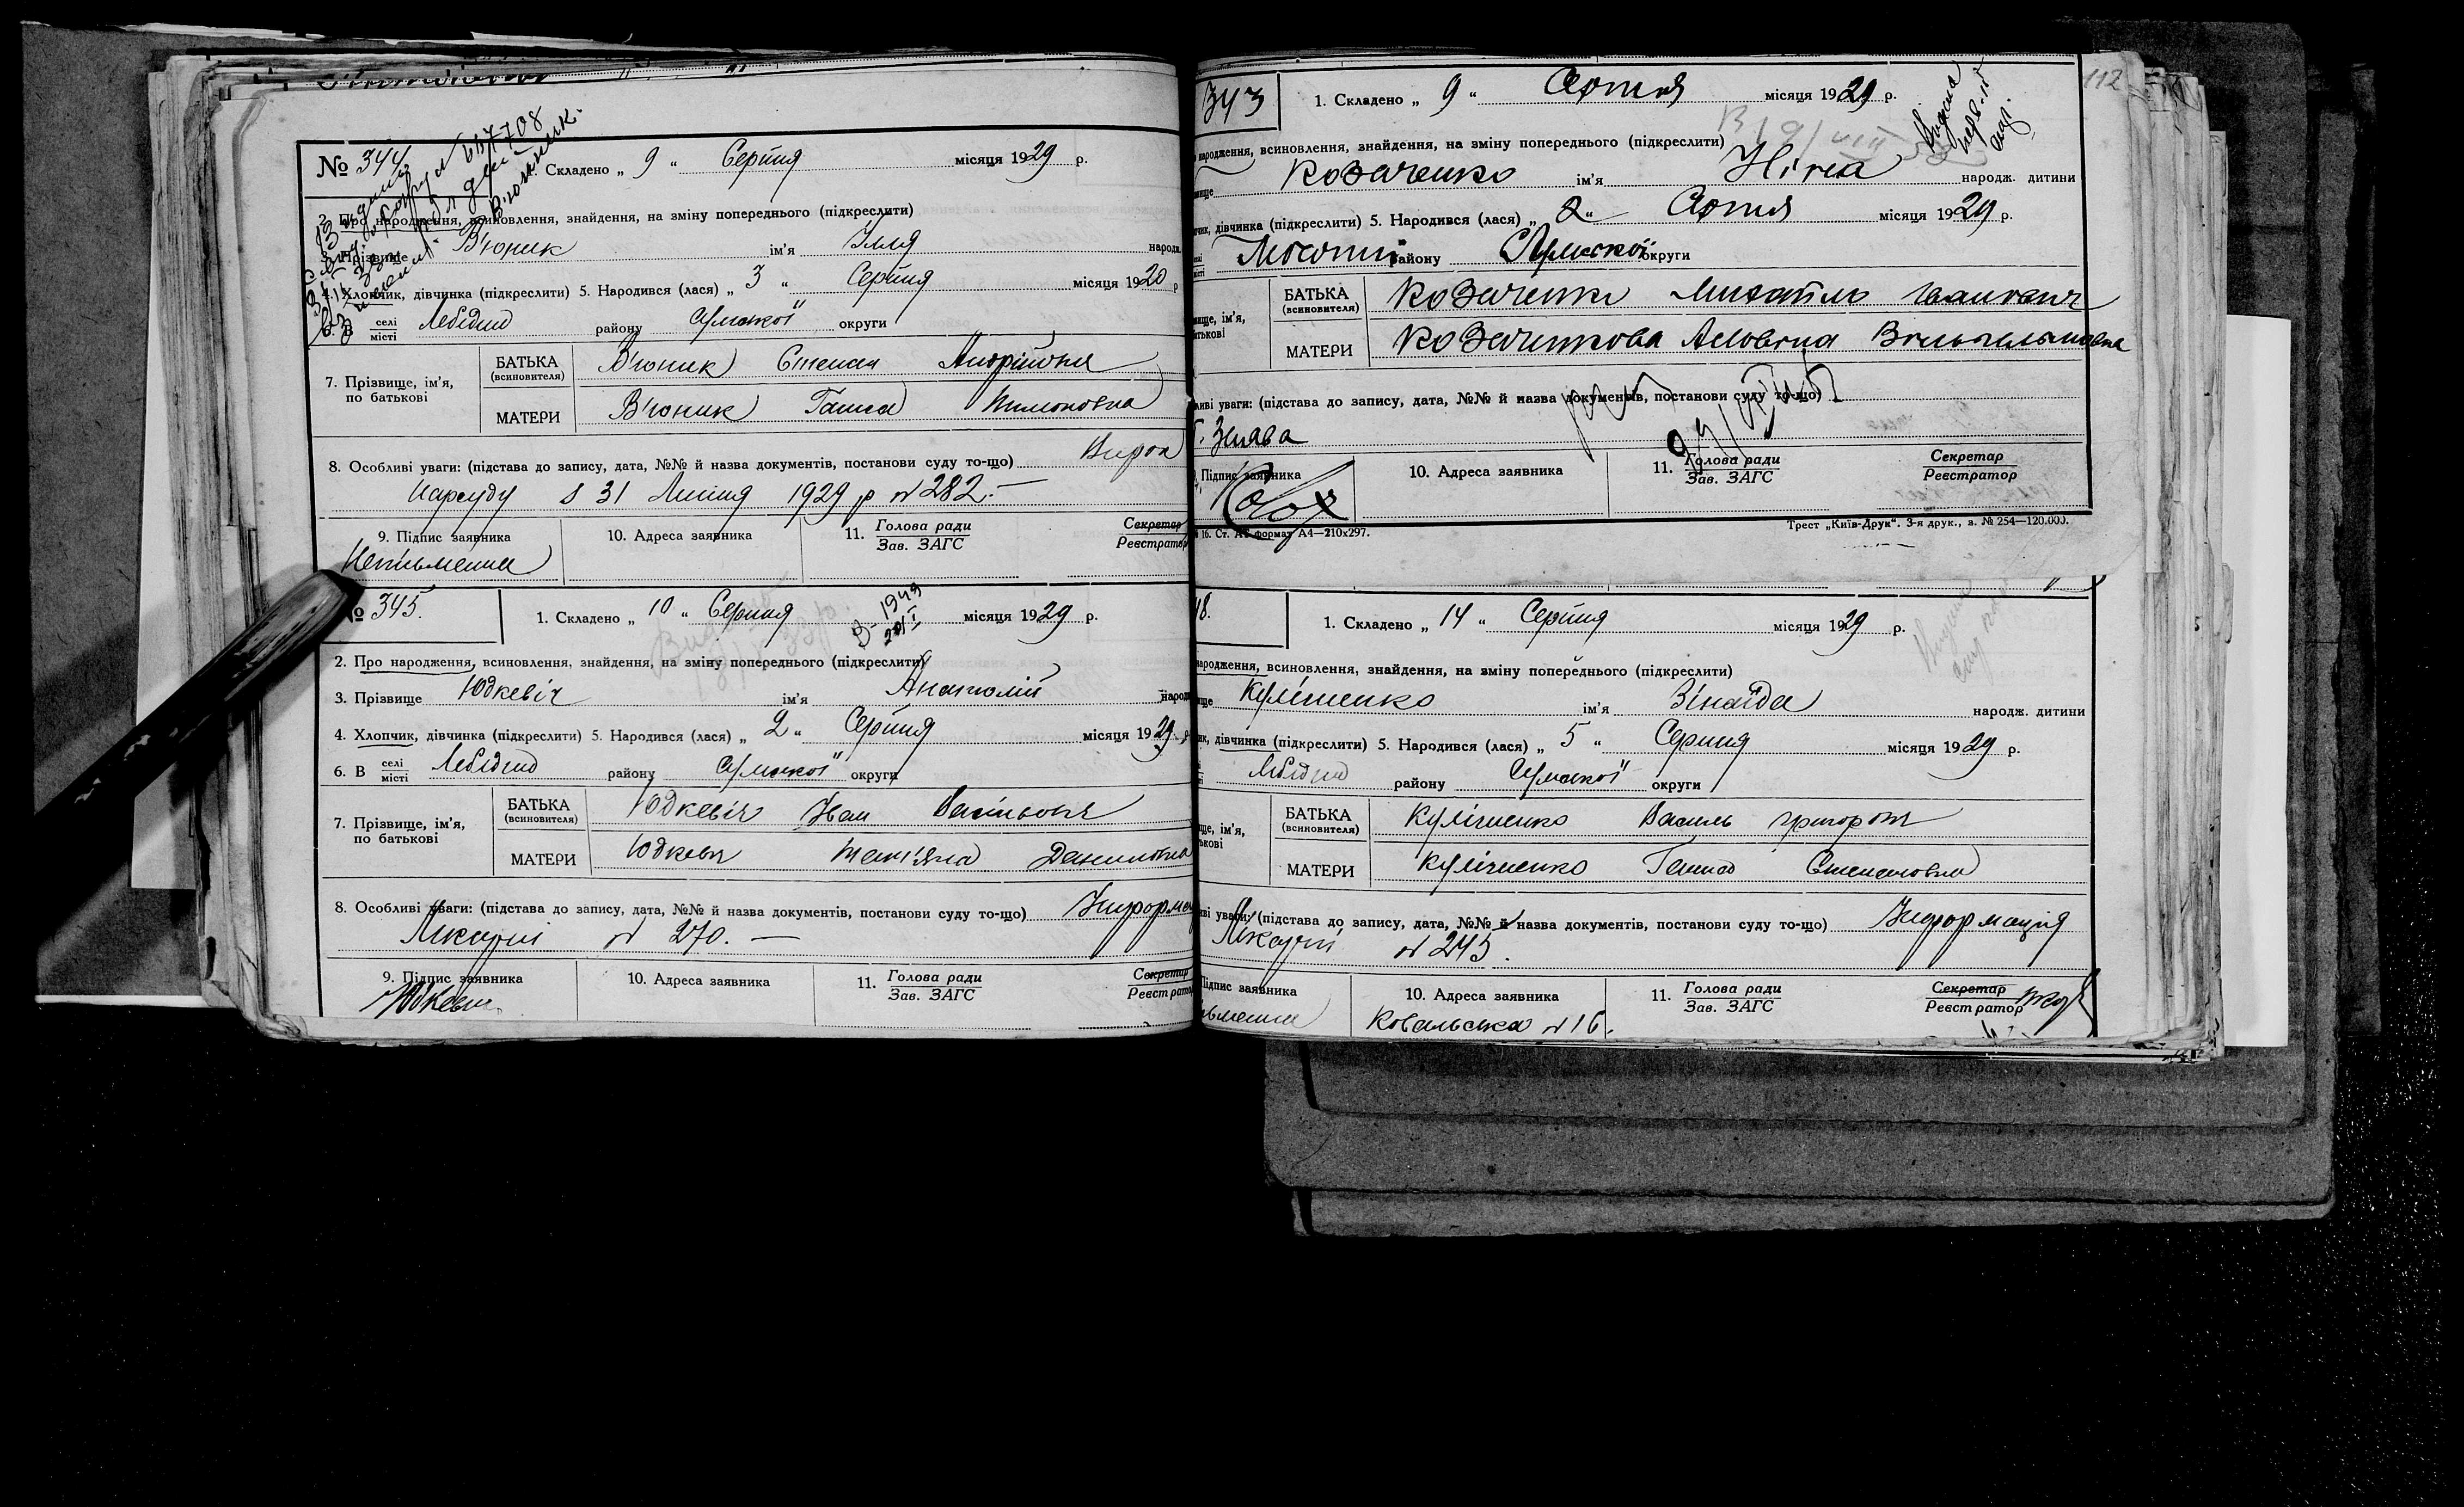 № 344
1. Складено „ 9 “ Серпня місяця 1929 р.
2. Про народження, всиновлення, знайдення, на зміну попереднього (підкреслити)
3. Прізвище В'юник ім'я Ілля народж.
4. Хлопчик, дівчинка (підкреслити) 5. Народився (лася) „ 3 “ Серпня місяця 1920 р
6. В селі місті Лебедині району Сумської округи
7. Прізвище, ім'я, по батькові
БАТЬКА (всиновителя) В'юник Степан Андрійович
МАТЕРИ В'юник Ганна
8. Особливі уваги: (підстава до запису, дата, №№ й назва документів, постанови суду то-що) Вирок
Нарсуду з 31 Липня 1929 р № 282.—
9. Підпис заявника 10. Адреса заявника 11. Голова ради Зав. ЗАГС Секретар Реєстратор
Неписьменна
№ 345.
1. Складено „ 10 “ Серпня місяця 1929 р.
В-1949
2. Про народження, всиновлення, знайдення, на зміну попереднього (підкреслити)
3. Прізвище Юдкевіч ім'я Анатолій народж
4. Хлопчик, дівчинка (підкреслити) 5. Народився (лася) „ 2 “ Серпня місяця 1929 р.
6. В селі місті Лебедині району Сумської округи
7. Прізвище, ім'я, по батькові
БАТЬКА (всиновителя) Юдкевіч Іван Васільович
МАТЕРИ Юдкевіч Тетяна Даниловна
8. Особливі уваги: (підстава до запису, дата, №№ й назва документів, постанови суду то-що) Інформац
Лікарні № 270. —
9. Підпис заявника 10. Адреса заявника 11. Голова ради Зав. ЗАГС Секретар Реєстратор
Юдкевич
112
343
1. Складено „ 9 “ Серпня місяця 1929 р.
народження, всиновлення, знайдення, на зміну попереднього (підкреслити)
Козаченко ім'я Ніна народж. дитини
дівчинка (підкреслити) 5. Народився (лася) „ 2 “ Серпня місяця 1929 р.
району Сумської округи
БАТЬКА (всиновителя) Козаченко Михайло Іванович
МАТЕРИ Козаченкова
уваги: (підстава до запису, дата, №№ й назва документів, постанови суду то-що)
Заява
Підпис заявника 10. Адреса заявника 11. Голова ради Зав. ЗАГС Секретар Реєстратор
16. Ст. А5 формат А4—210х297.
Трест „Київ-Друк“. 3-я друк., в. № 254—120.000.
48.
1. Складено „ 14 “ Серпня місяця 1929 р.
народження, всиновлення, знайдення, на зміну попереднього (підкреслити)
Кулішенко ім'я Зінаїда народж. дитини
дівчинка (підкреслити) 5. Народився (лася) „ 5 “ Серпня місяця 1929 р.
Лебедині району Сумської округи
БАТЬКА (всиновителя) Кулішенко Василь Григорович
МАТЕРИ Кулішенко Ганна Степановна
уваги: (підстава до запису, дата, №№ й назва документів, постанови суду то-що) Інформація
Лікарні № 245.
Підпис заявника 10. Адреса заявника 11. Голова ради Зав. ЗАГС Секретар Реєстратор
Ковальська № 16.